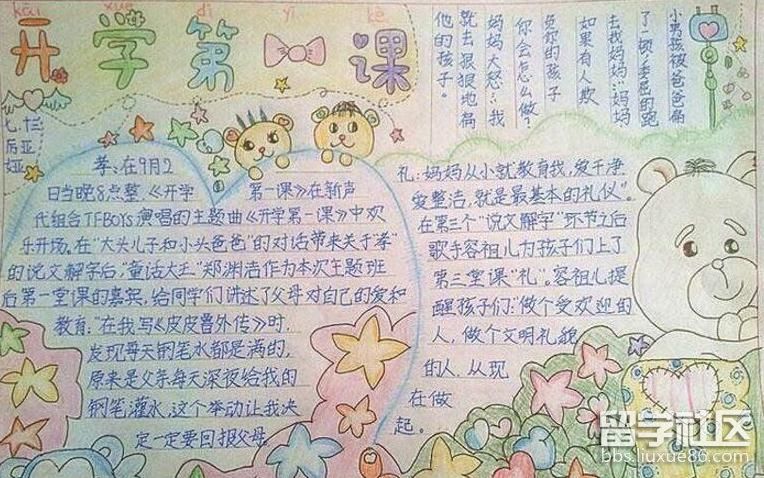 kāi xué dì yī kè
开学第一课
七.十三
厉亚
娅
小男孩被爸爸扁
了一顿,委屈的跑
去找妈妈…妈妈
如果有人欺
负你的孩子
你会怎么做?
妈妈大怒:我
就去狠狠地扁
他的孩子。
孝:在9月2
日当晚8点整《开学第一课》在新声
代组合TFBOYS演唱的主题曲《开学第一课》中欢
乐开场。在"大头儿子和小头爸爸"的对话带来关于"孝"
的说文解字后,"童话大王"郑渊洁作为本次主题班
后第一堂课的嘉宾,给同学们讲述了父母对自己的爱和
教育:"在我写《皮皮鲁外传》时,
发现每天钢笔水都是满的,
原来是父亲每天深夜给我的
钢笔灌水,这个举动让我决
定一定要回报父母。
礼:妈妈从小就教育我,爱干净
爱整洁,就是最基本的礼仪"。
在第三个"说文解字"环节之后
歌手容祖儿为孩子们上了
第三堂课"礼"。容祖儿提
醒孩子们:"做个受欢迎的
人,做个文明礼貌
的人,从现
在做
起。
留学社区
bbs.liuxue86.com